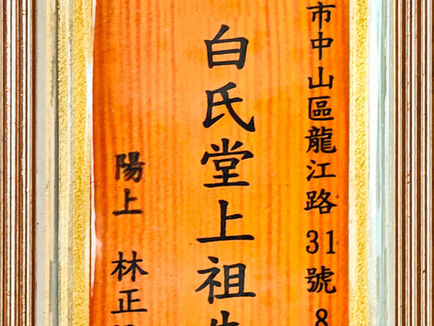 市中山區龍江路31號8
白氏堂上祖
陽上 林正